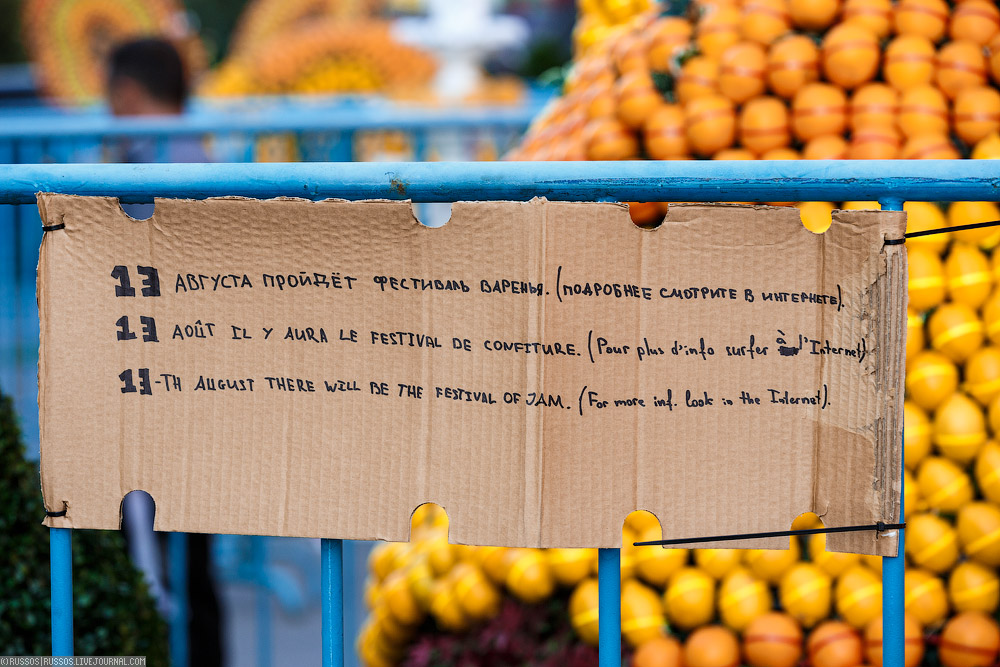 13 АВГУСТА ПРОЙДЁТ ФЕСТИВАЛЬ ВАРЕНЬЯ. (ПОДРОБНЕЕ СМОТРИТЕ В ИНТЕРНЕТЕ).
13 AOÛT IL Y AURA LE FESTIVAL DE CONFITURE. (Pour plus d'info surfer à l'Internet)
13-TH AUGUST THERE WILL BE THE FESTIVAL OF JAM. (For more inf. look in the Internet).
(C)RUSSOS|RUSSOS.LIVEJOURNAL.COM